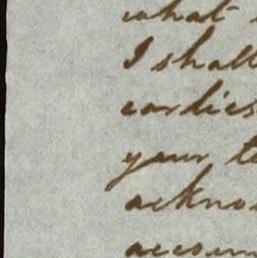 what
I shall
earlies
your te
ackno
accoun